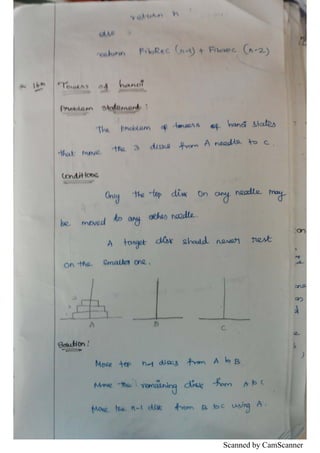 return n
else
return FiboRec (n-1) + Fiborec (n-2)
Towers of hanoi
Problem statement :
The problem of towers of hanoi states
that move the 3 disks from A needle to C.
Conditions
Only the top disk on any needle may
be moved to any other needle.
A larger disk should never rest
on the smaller one.
A B C
Solution:
Move top n-1 discs from A to B
Move the remaining disk from A to C
Move the n-1 disk from B to C using A.
Scanned by CamScanner